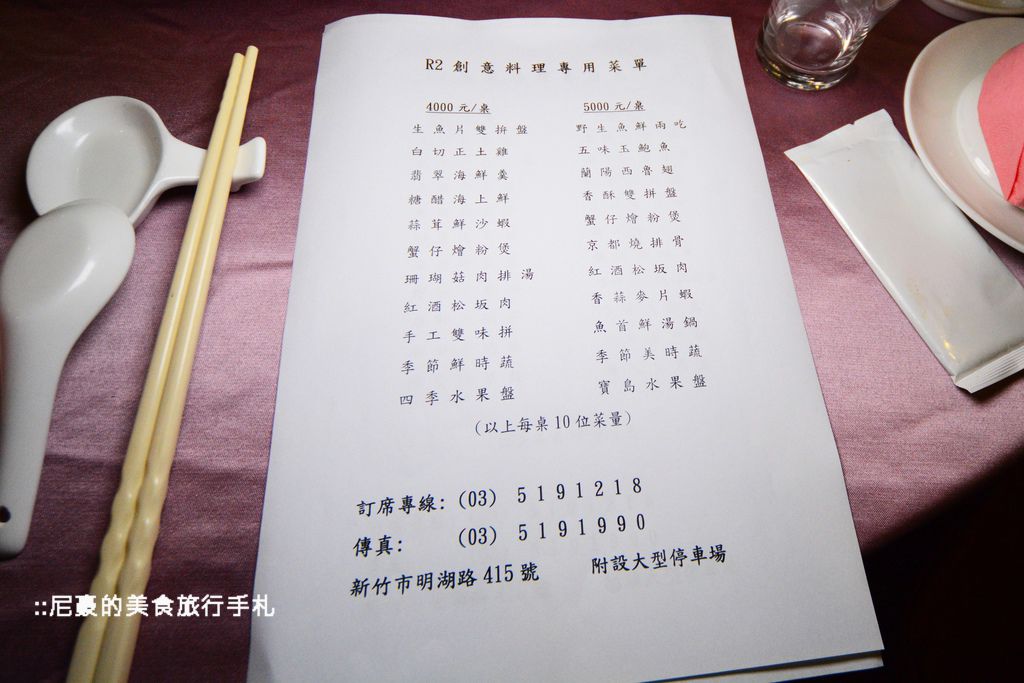 R2 創意料理專用菜單
4000 元/桌
生魚片雙拚盤
白切正土雞
翡翠海鮮羹
糖醋海上鮮
蒜茸鮮沙蝦
蟹仔燴粉煲
珊瑚菇肉排湯
紅酒松坂肉
手工雙味拼
季節鮮時蔬
四季水果盤
5000 元/桌
野生魚鮮兩吃
五味玉鮑魚
蘭陽西魯翅
香酥雙拼盤
蟹仔燴粉煲
京都燒排骨
紅酒松坂肉
香蒜麥片蝦
魚首鮮湯鍋
季節美時蔬
寶島水果盤
(以上每桌10位菜量)
訂席專線: (03) 5191218
傳真: (03) 5191990
新竹市明湖路 415 號 附設大型停車場
::尼豪的美食旅行手札